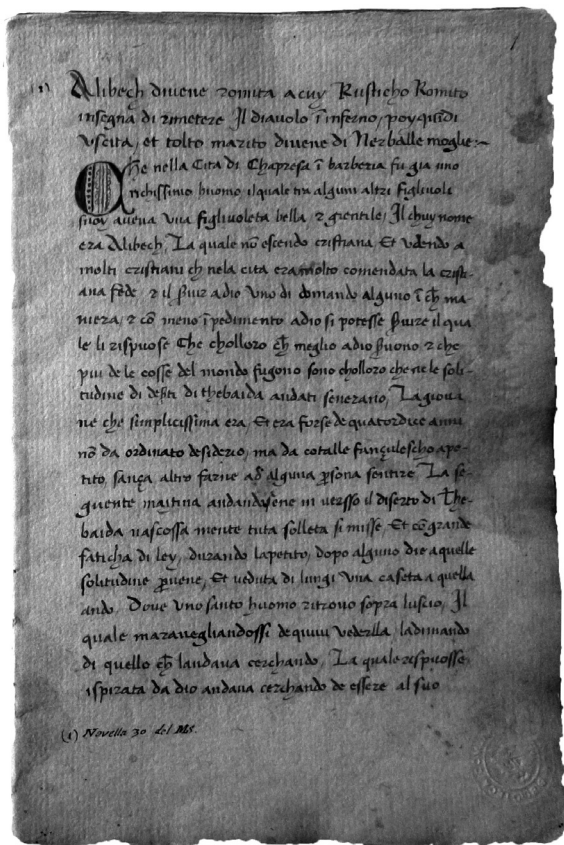 1
(1) Alibech divene romita a cuy Rusticho Romito
insegna di rimetere Il diavolo ĩ inferno, poy quĩdi
uscita, et tolto marito divene di Nerballe moglie:~
Che nella Cita di Chapresa ĩ barberia fu gia uno
richissimo huomo il quale tra alguni altri figlivoli
suoy aveva una figlivoleta bella & gientile, Il chuy nome
era Alibech, La quale nõ escendo cristiana, Et udendo a
molti cristiani ch̃ nela cita era molto comendata la cristi-
ana fede, & il s̃uir a dio Uno di domando alguno ĩ ch̃ ma
niera, & cõ meno ĩpedimento a dio si potesse s̃uire il qua
le li rispuose Che cholloro ch̃ meglio a dio s̃uono & che
piu de le cosse del mondo fugono sono cholloro che ne le soli-
tudine di des̃ti di thebaida andati senerano, La giova
ne che simplicissima era, Et era forse de quatordice anni
nõ da ordinato desiderio, ma da cotalle fançulescho ape-
tito, sança altro farne ad alguna p̱sona sentire La se-
guente maitina andandosene in versso il diserto di The-
baida nascossa mente tuta solleta si misse, Et cõ grande
faticha di ley, durando lapetito, dopo alguno die a quelle
solitudine p̱uene, Et veduta di lungi una caseta a quella
ando, Dove uno santo huomo ritrovo sopra luscio, Il
quale maravegliandossi de quivi vederlla, la dimando
di quello ch̃ landava cerchando, La quale rispuosse
ispirata da dio andava cerchando de essere al suo
(1) Novella 30 del MS.